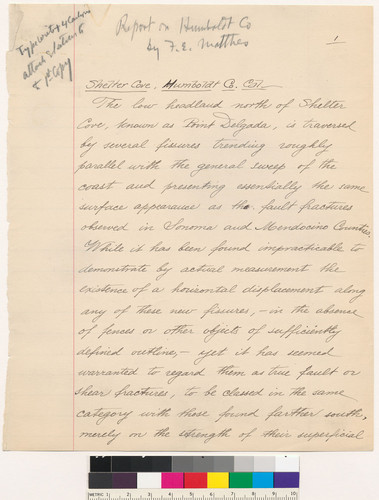 Report on Humboldt Co
by F. E. Matthes
Typewrite 4 carbons
attach
to 1st Copy
1
Shelter Cove, Humboldt Co. Cal.
The low headland north of Shelter
Cove, known as Point Delgada, is traversed
by several fissures trending roughly
parallel with the general sweep of the
coast and presenting essentially the same
surface appearance as the fault fractures
observed in Sonoma and Mendocino Counties.
While it has been found impracticable to
demonstrate by actual measurement the
existence of a horizontal displacement along
any of these new fissures, – in the absence
of fences or other objects of sufficiently
defined outline, – yet it has seemed
warranted to regard them as true fault or
shear fractures, to be classed in the same
category with those found farther south,
merely on the strength of their superficial
METRIC 1 2 3 4 5 6 7 8 9 10